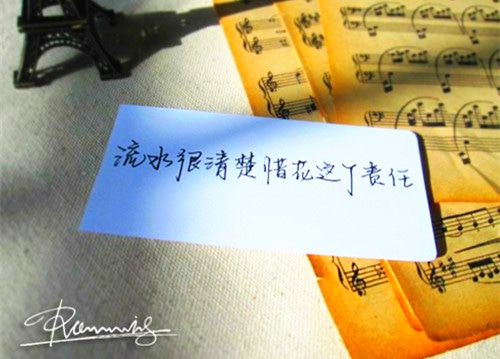 流水很清楚惜花这个责任